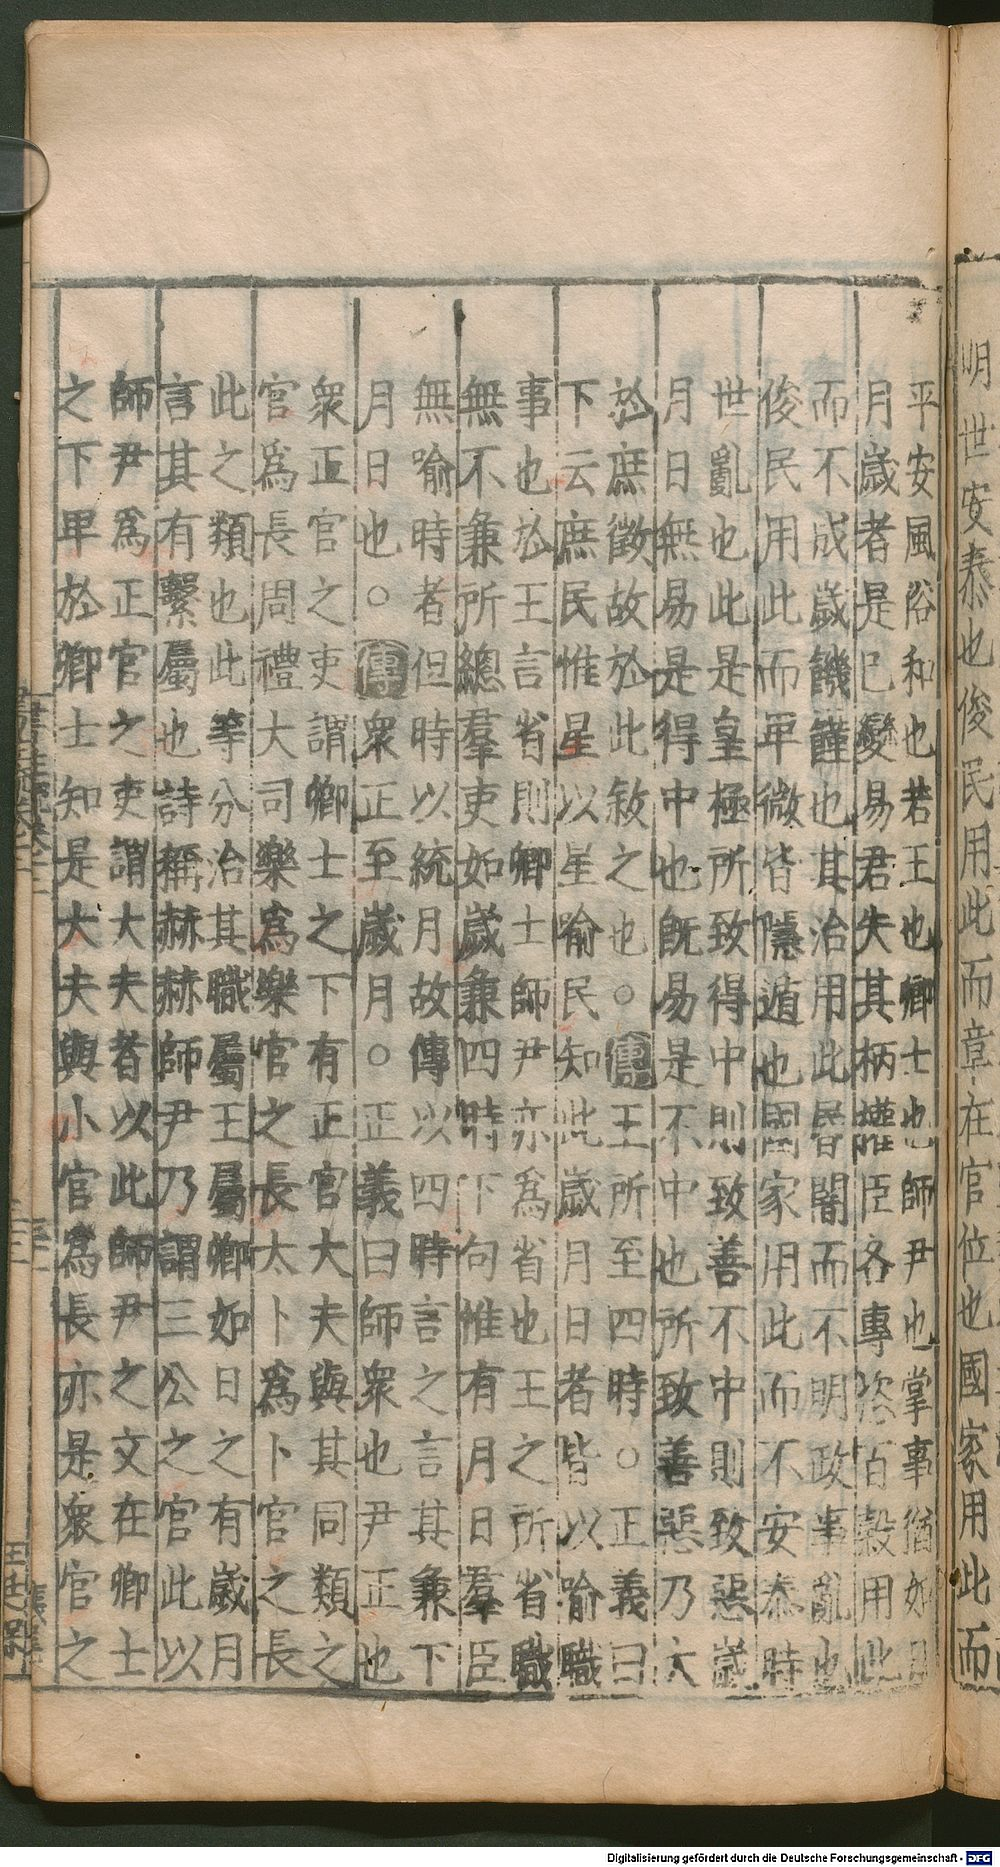 明世安泰也俊民用此而章在官位也國家用此而
平安風俗和也若王也卿士也師尹也掌事猶如日
月歲者是已變易君失其柄權臣各專恣百穀用此
而不成歲饑饉也其治用此昬闇而不明政事亂也
俊民用此而卑微皆隱遁也國家用此而不安泰時
世亂也此是皇極所致得中則致善不中則致惡歲
月日無易是得中也旣易是不中也所致善惡乃大
於庶徵故於此敘之也○傳王所至四時○正義曰
下云庶民惟星以星喻民知此歲月日者皆以喻職
事也於王言省則卿士師尹亦爲省也王之所省職
無不兼所總羣吏如歲兼四時下句惟有月日羣臣
無喻時者但時以統月故傳以四時言之言其兼下
月日也○傳衆正至歲月○正義曰師衆也尹正也
衆正官之吏謂卿士之下有正官大夫與其同類之
官爲長周禮大司樂爲樂官之長太卜爲卜官之長
此之類也此等分治其職屬王屬卿如日之有歲月
言其有繫屬也詩稱赫赫師尹乃謂三公之官此以
師尹爲正官之吏謂大夫者以此師尹之文在卿士
之下卑於卿士知是大夫與小官爲長亦是衆官之
Digitalisierung gefördert durch die Deutsche Forschungsgemeinschaft - DFG